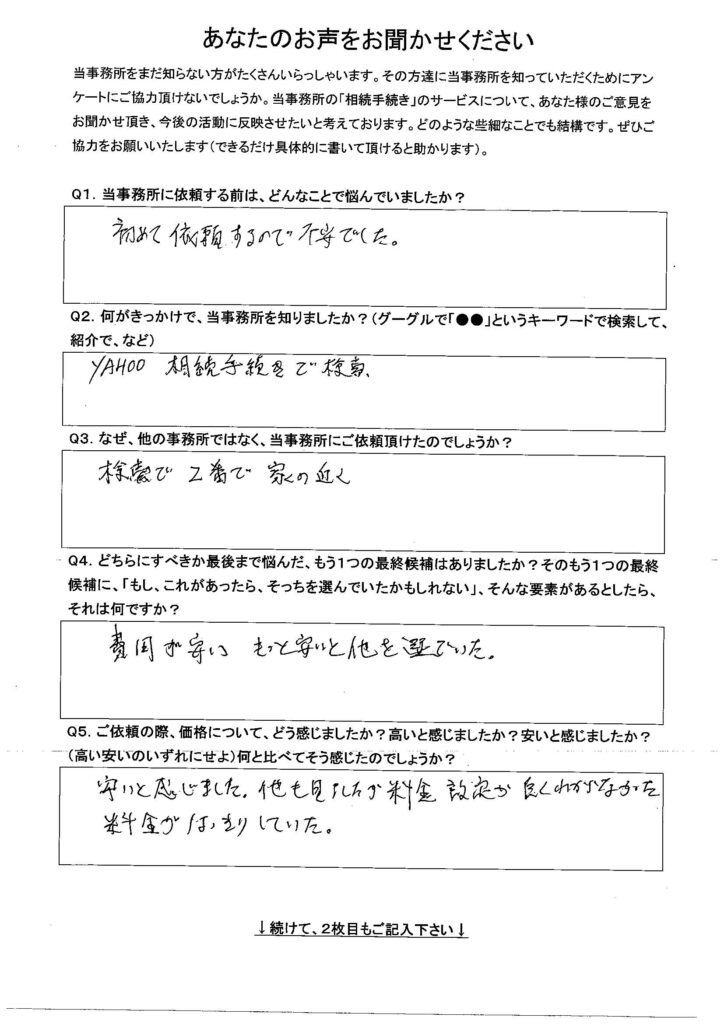 あなたのお声をお聞かせください
当事務所をまだ知らない方がたくさんいらっしゃいます。その方達に当事務所を知っていただくためにアン
ケートにご協力頂けないでしょうか。当事務所の「相続手続き」のサービスについて、あなた様のご意見を
お聞かせ頂き、今後の活動に反映させたいと考えております。どのような些細なことでも結構です。ぜひご
協力をお願いいたします(できるだけ具体的に書いて頂けると助かります)。
Q1. 当事務所に依頼する前は、どんなことで悩んでいましたか?
初めて依頼するので不安でした。
Q2. 何がきっかけで、当事務所を知りましたか?(グーグルで「●●」というキーワードで検索して、
紹介で、など)
YAHOO 相続手続きで検索、
Q3. なぜ、他の事務所ではなく、当事務所にご依頼頂けたのでしょうか?
検索で 2番で 家の近く
Q4. どちらにすべきか最後まで悩んだ、もう1つの最終候補はありましたか?そのもう1つの最終
候補に、「もし、これがあったら、そっちを選んでいたかもしれない」、そんな要素があるとしたら、
それは何ですか?
費用が安い もっと安いと他を選でいた。
Q5. ご依頼の際、価格について、どう感じましたか?高いと感じましたか?安いと感じましたか?
(高い安いのいずれにせよ)何と比べてそう感じたのでしょうか?
安いと感じました。他も見ましたが料金設定が良くわからなかった
料金がはっきりしていた。
↓続けて、2枚目もご記入下さい↓